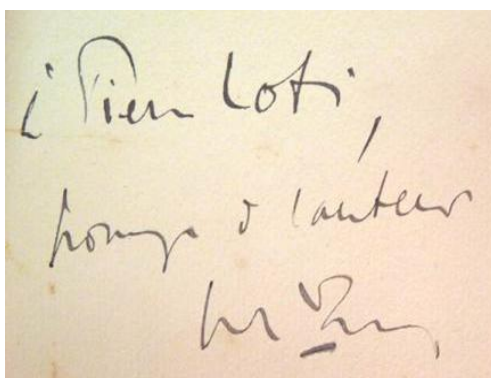 à Pierre Loti,
hommage de l'auteur